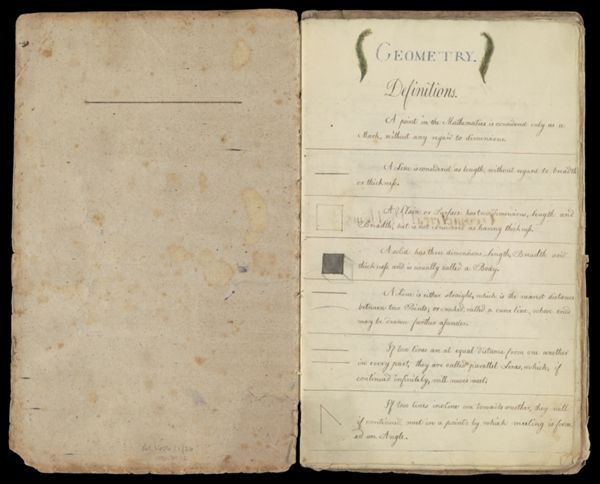 GEOMETRY.
Definitions.
A point in the Mathematics is considered only as a
Mark, without any regard to dimensions.
A Line is considered as length, without regard to breadth
or thickness.
A Plain or Surface has two dimensions, length and
Breadth, but is not considered as having thickness.
A solid has three dimensions Length, Breadth and
thickness and is usually called a Body.
A Line is either straight, which is the nearest distance
between two Points; or crooked, called a curve line, whose ends
may be drawn further asunder.
If two lines are at equal distance from one another
in every part, they are called parallel Lines, which, if
continued infinitely, will never meet.
If two lines incline one towards another, they will
if continued meet in a point; by which meeting is form=
ed an Angle.